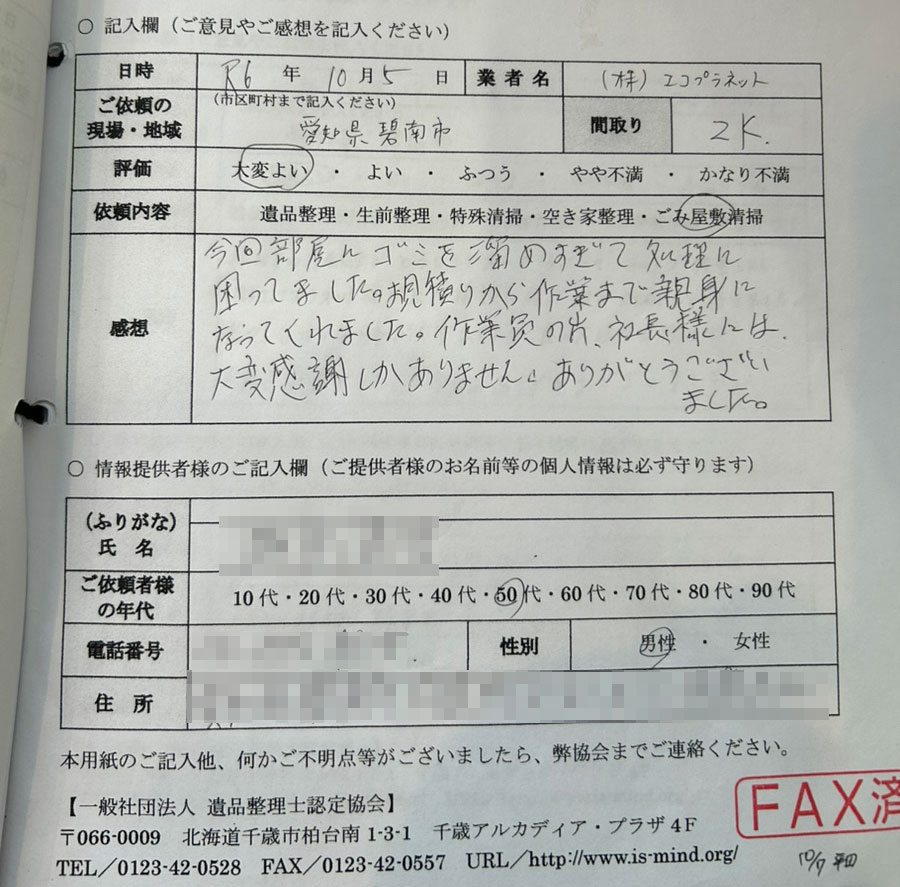 ○ 記入欄（ご意見やご感想を記入ください）
日時 R6 年 10月5 日 業者名 (株) エコプラネット
ご依頼の現場・地域 (市区町村まで記入ください) 愛知県碧南市 間取り 2K.
評価 大変よい ・ よい ・ ふつう ・ やや不満 ・ かなり不満
依頼内容 遺品整理・生前整理・特殊清掃・空き家整理・ごみ屋敷清掃
感想
今回部屋にゴミを溜めすぎて処理に
困ってました。見積りから作業まで親身に
なってくれました。作業員の方、社長様には
大変感謝しかありません。ありがとうござい
ました。
○ 情報提供者様のご記入欄（ご提供者様のお名前等の個人情報は必ず守ります）
(ふりがな)
氏 名
ご依頼者様の年代 10代・20代・30代・40代・50代・60代・70代・80代・90代
電話番号 性別 男性 ・ 女性
住 所
本用紙のご記入他、何かご不明点等がございましたら、弊協会までご連絡ください。
【一般社団法人 遺品整理士認定協会】
〒066-0009 北海道千歳市柏台南1-3-1 千歳アルカディア・プラザ4F
TEL／0123-42-0528 FAX／0123-42-0557 URL／http://www.is-mind.org/
FAX済
10/7 平田